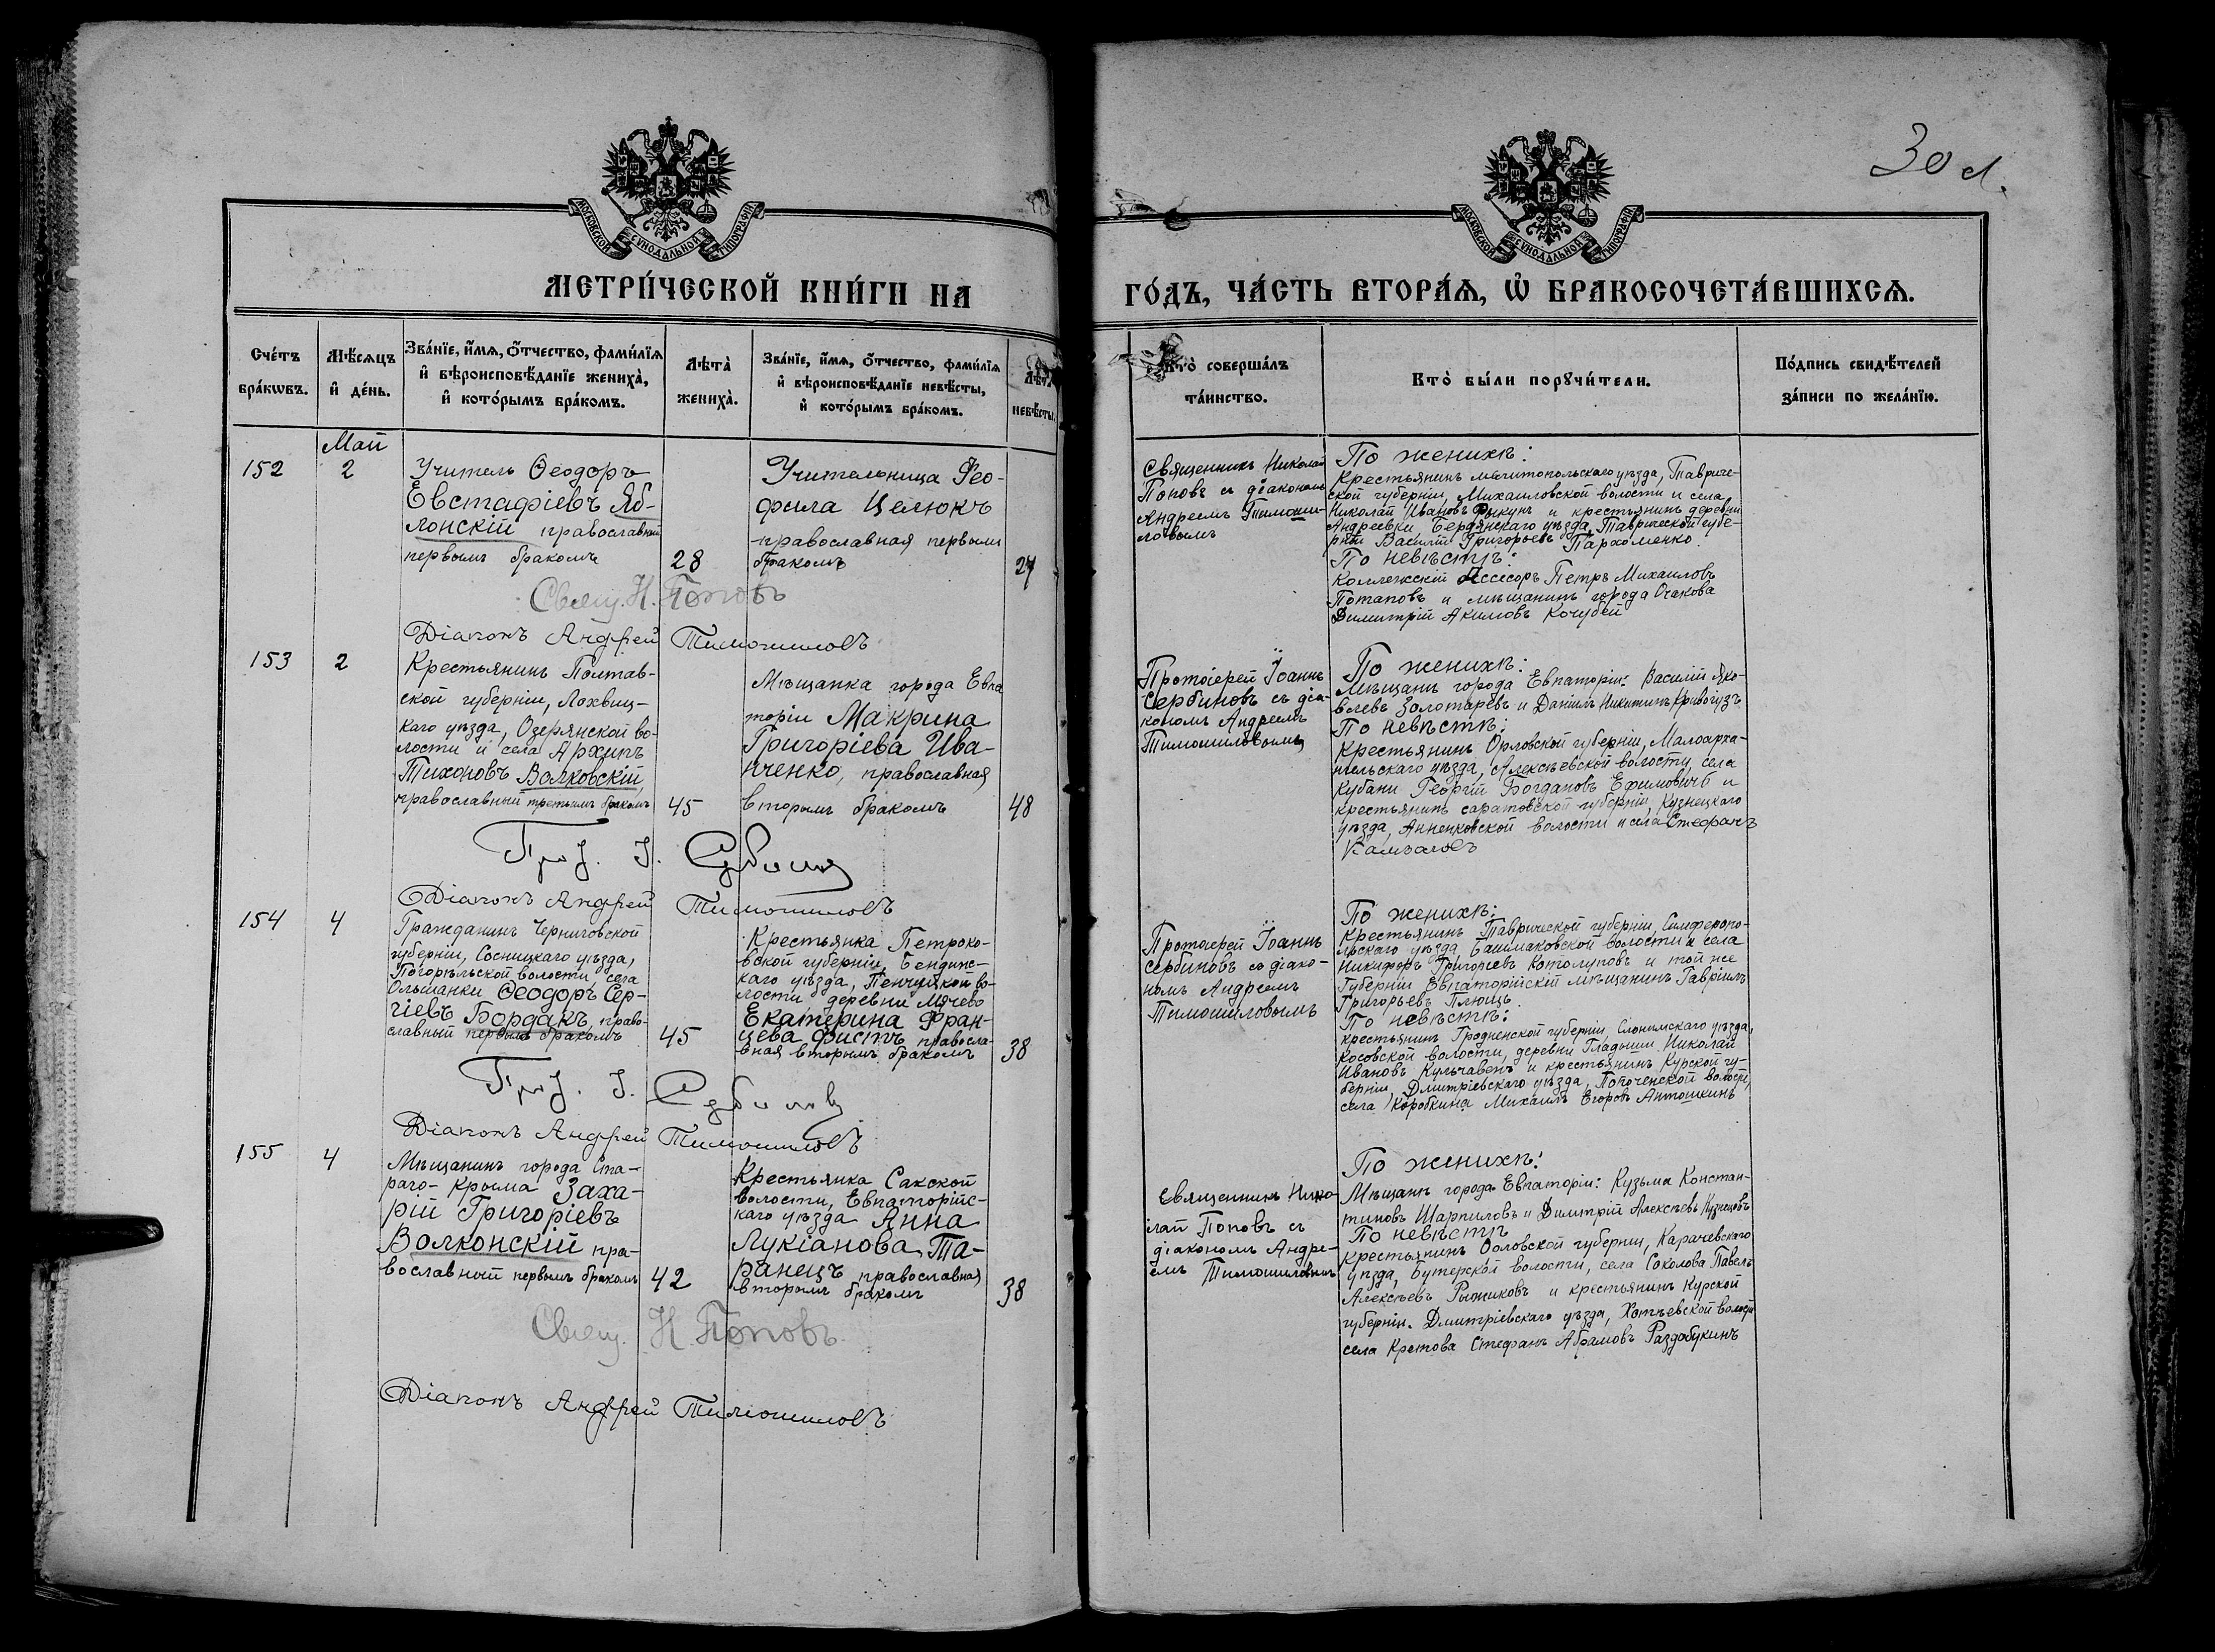 30 л.
МОСКОВСКОЙ СУНОДАЛЬНОЙ ТИПОГРАФІИ
МОСКОВСКОЙ СУНОДАЛЬНОЙ ТИПОГРАФІИ
МЕТРИ́ЧЕСКОЙ КНИ́ГИ НА
ГО́ДЪ, ЧА́СТЬ ВТОРА́Ѧ, Ѡ҆ БРАКОСОЧЕТА́ВШИХСѦ.
Сче́тъ
бра́кѡвъ.
Мѣ́сѧцъ
и҆ де́нь.
Зва́нїе, и҆́мѧ, ѻ҆́тчество, фами́лїѧ
и҆ вѣроисповѣ́данїе жениха̀,
и҆ кото́рымъ бра́комъ.
Лѣта̀
жениха̀.
Зва́нїе, и҆́мѧ, ѻ҆́тчество, фами́лїѧ
и҆ вѣроисповѣ́данїе невѣ́сты,
и҆ кото́рымъ бра́комъ.
Лѣта̀
невѣ́сты.
Кто̀ соверша́лъ
та́инство.
Кто̀ бы́ли порꙋчи́тели.
По́дпись свидѣ́телей
за́писи по жела́нїю.
Май
152
2
Учитель Ѳеодоръ
Евстафіевъ Яб-
лонскій православный
первымъ бракомъ
28
Учительница Фео-
фила Целюкъ
православная первымъ
бракомъ
24
Священникъ Николай
Поповъ съ діакономъ
Андреемъ Тимоши-
ловымъ
По женихѣ:
Крестьянинъ Мелитопольскаго уѣзда, Тавриче-
ской губерніи, Михаиловской волости и села
Николай Ивановъ Рыкунъ и крестьянинъ деревни
Андреевки Бердянскаго уѣзда, Таврической губе-
рніи Василій Григорьевъ Пархоменко.
По невѣстѣ:
Коллежскій Ассесоръ Петръ Михаиловъ
Потаповъ и мѣщанинъ города Очакова
Димитрій Акимовъ Кочубей
Свящ. Н. Поповъ
Діаконъ Андрей Тимошиловъ
153
2
Крестьянинъ Полтав-
ской губерніи, Лохвиц-
каго уѣзда, Озерянской во-
лости и села Архипъ
Тихоновъ Волковскій,
православный третьимъ бракомъ
45
Мѣщанка города Евпа
торіи Макрина
Григоріева Ива-
нченко, православная
вторымъ бракомъ
48
Протоіерей Іоаннъ
Сербиновъ съ діа-
кономъ Андреемъ
Тимошиловымъ
По женихѣ:
Мѣщане города Евпаторіи: Василій Яко-
влевъ Золотаревъ и Даніилъ Никитинъ Кривогузъ
По невѣстѣ:
Крестьянинъ Орловской губерніи, Малоарха-
нгельскаго уѣзда, Алексѣевской волости, села
Кубани Георгій Богдановъ Ефимовичъ и
крестьянинъ саратовской губерніи, Кузнецкаго
уѣзда, Анненковской волости и села Стефанъ
Камзаловъ
Прот. І. Сербиновъ
Діаконъ Андрей Тимошиловъ
154
4
Гражданинъ Черниговской
губерніи, Сосницкаго уѣзда,
Погорѣльской волости, села
Ольшанки Ѳеодоръ Сер-
гіевъ Бордакъ, право-
славный первымъ бракомъ
45
Крестьянка Петроко-
вской губерніи, Бендинс-
каго уѣзда, Пенчуякой во-
лости деревни Мячево
Екатерина Фран-
цева Фистъ правосла-
вная вторымъ бракомъ
38
Протоіерей Іоаннъ
сербиновъ съ діако-
номъ Андреемъ
Тимошиловымъ
По женихѣ:
Крестьянинъ Таврической губерніи, Симферопо-
льскаго уѣзда Башмаковской волости и села
Никифоръ Григорьевъ Котолуповъ и той же
губерніи Евпаторійскій мѣщанинъ Гавріилъ
Григорьевъ Плющъ.
По невѣстѣ:
крестьянинъ Гродненской губерніи, Слонимскаго уѣзда,
Косовской волости, деревни Гладыши Николай
Ивановъ Кульчавенъ и крестьянинъ Курской гу-
берніи, Дмитріевскаго уѣзда, Поповенской волости,
села Коробкина Михаилъ Егоровъ Антошкинъ
Прот. І. Сербиновъ
Діаконъ Андрей Тимошиловъ
155
4
Мѣщанинъ города Ста-
раго-Крыма Заха-
рій Григоріевъ
Волконскій пра-
вославный первымъ бракомъ
42
Крестьянка Сакской
волости, Евпаторійс-
каго уѣзда Анна
Лукіанова Та-
ранецъ православная
вторымъ бракомъ
38
Священникъ Нико-
лай Поповъ съ
діакономъ Андре-
емъ Тимошиловымъ
По женихѣ:
Мѣщане города Евпаторіи: Кузьма Констан-
тиновъ Шарпиловъ и Димитрій Алексѣевъ Кузнецовъ
По невѣстѣ
крестьянинъ Орловской губерніи, Карачевскаго
уѣзда, Бутерской волости, села Соколова Павелъ
Алексѣевъ Рыжиковъ и крестьянинъ Курской
губерніи. Дмитріевскаго уѣзда, Хотѣевской волости
села Кретова Стефанъ Абрамовъ Раздобукинъ
Свящ. Н. Поповъ.
Діаконъ Андрей Тимошиловъ